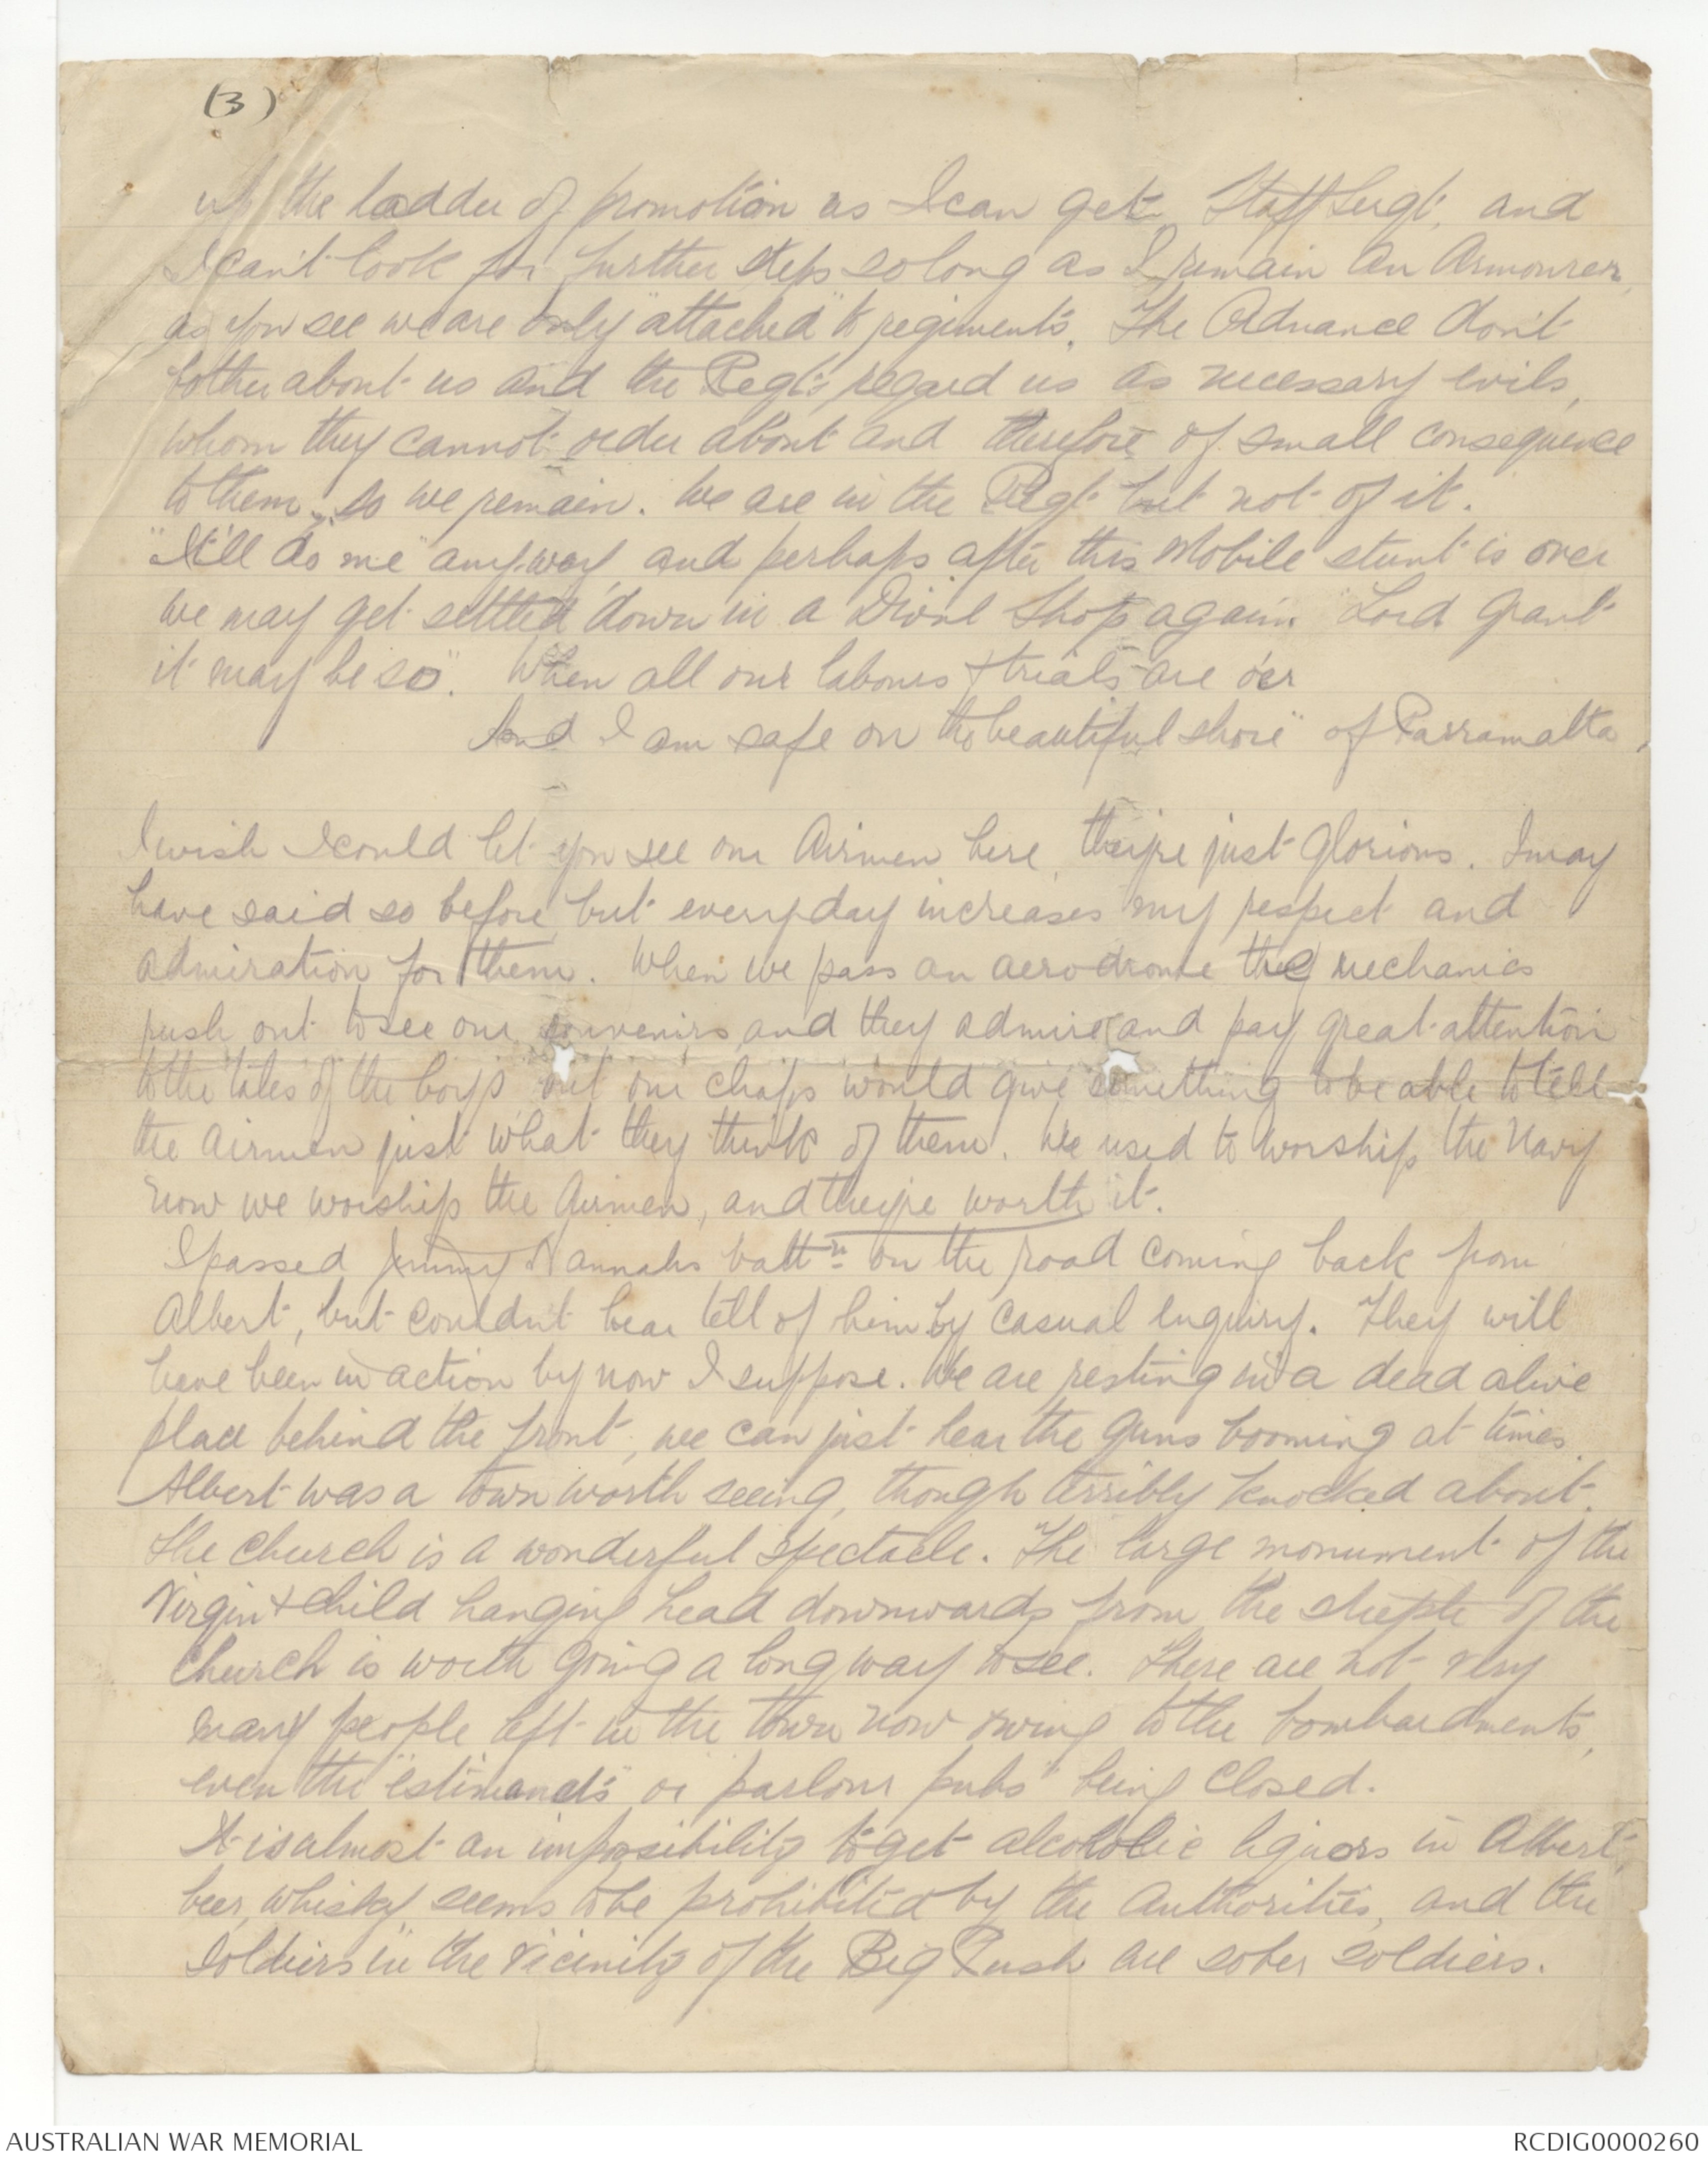 (3)
up the ladder of promotion as I can get, Staff Sergt, and
I can't look for further steps so long as I remain an Armourer,
as you see we are only "attached" to regiments. The Ordnance don't
bother about us and the Regts regard us as necessary evils,
whom they cannot order about and therefore of small consequence
to them, so we remain. We are in the Regt but not of it.
"It'll do me" anyway, and perhaps after this Mobile stunt is over
we may get settled down in a Divnl Shop again. "Lord Grant
it may be so". When all our labours & trials are o'er
And I am safe on the beautiful shore" of Parramatta.
I wish I could let you see our Airmen here, they're just Glorious. I may
have said so before but everyday increases my respect and
admiration for them. When we pass an aerodrome the mechanics
rush out to see our souvenirs and they admire and pay great attention
to the tales of the boys but our chaps would give something to be able to tell
the Airmen just what they think of them. We used to worship the Navy
now we worship the Airmen, and they're worth it.
I passed Jimmy Hannahs battn on the road coming back from
Albert, but couldn't hear tell of him by casual enquiry. They will
have been in action by now I suppose. We are resting in a dead alive
place behind the front, we can just hear the guns booming at times.
Albert was a town worth seeing, though terribly knocked about.
The church is a wonderful spectacle. The large monument of the
Virgin & child hanging head downwards from the steeple of the
Church is worth going a long way to see. There are not very
many people left in the town now owing to the bombardments,
even the "estimanets" or parlour pubs" being closed.
It is almost an impossibility to get alcoholic liquors in Albert,
beer, whisky seems to be prohibited by the Authorities, and the
soldiers in the vicinity of the Big Push are sober soldiers.
AUSTRALIAN WAR MEMORIAL
RCDIG0000260